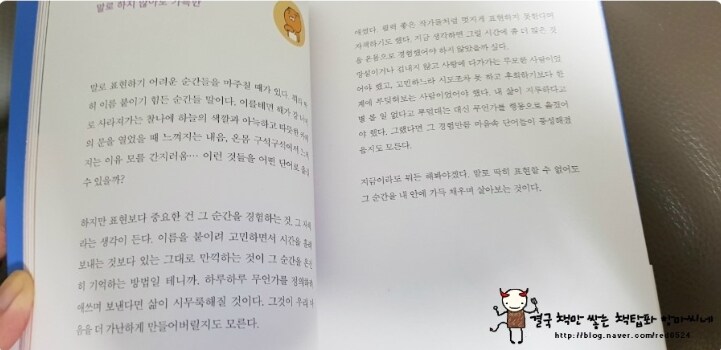 말로 하지 않아도 가득한
말로 표현하기 어려운 순간들을 마주칠 때가 있다.
히 이름 붙이기 힘든 순간들 말이다. 이를테면 해가
로 사라져가는 찰나에 하늘의 색깔과 아늑하고 따뜻한
의 문을 열었을 때 느껴지는 내음, 온몸 구석구석에서
지는 이유 모를 간지러움… 이런 것들을 어떤 단어로
수 있을까?
하지만 표현보다 중요한 건 그 순간을 경험하는 것, 그
라는 생각이 든다. 이름을 붙이려 고민하면서 시간을
보내는 것보다 있는 그대로 만끽하는 것이 그 순간을
히 기억하는 방법일 테니까. 하루하루 무언가를 정의하
애쓰며 보낸다면 삶이 시무룩해질 것이다. 그것이 우리
음을 더 가난하게 만들어버릴지도 모른다.
애썼다. 훨씬 좋은 작가들처럼 멋지게 표현하지 못한다며
자책하기도 했다. 지금 생각하면 그럴 시간에 좀 더 많은 것
을 온몸으로 경험했어야 하지 않았을까 싶다.
망설이거나 겁내지 않고 사랑에 다가가는 무모한 사람이었
어야 했고, 고민하느라 시도조차 못 하고 후회하기보다 한
번에 부딪혀보는 사람이었어야 했다. 내 삶이 지루하다고
별 볼 일 없다고 투덜대는 대신 무언가를 행동으로 옮겼어
야 했다. 그랬다면 그 경험만큼 마음속 단어들이 풍성해졌
을지도 모른다.
지금이라도 뭐든 해봐야겠다. 말로 딱히 표현할 수 없어도
그 순간을 내 안에 가득 채우며 살아보는 것이다.
결국 책만 쌓는 책탑파 앙마씨네
http://blog.naver.com/red8624